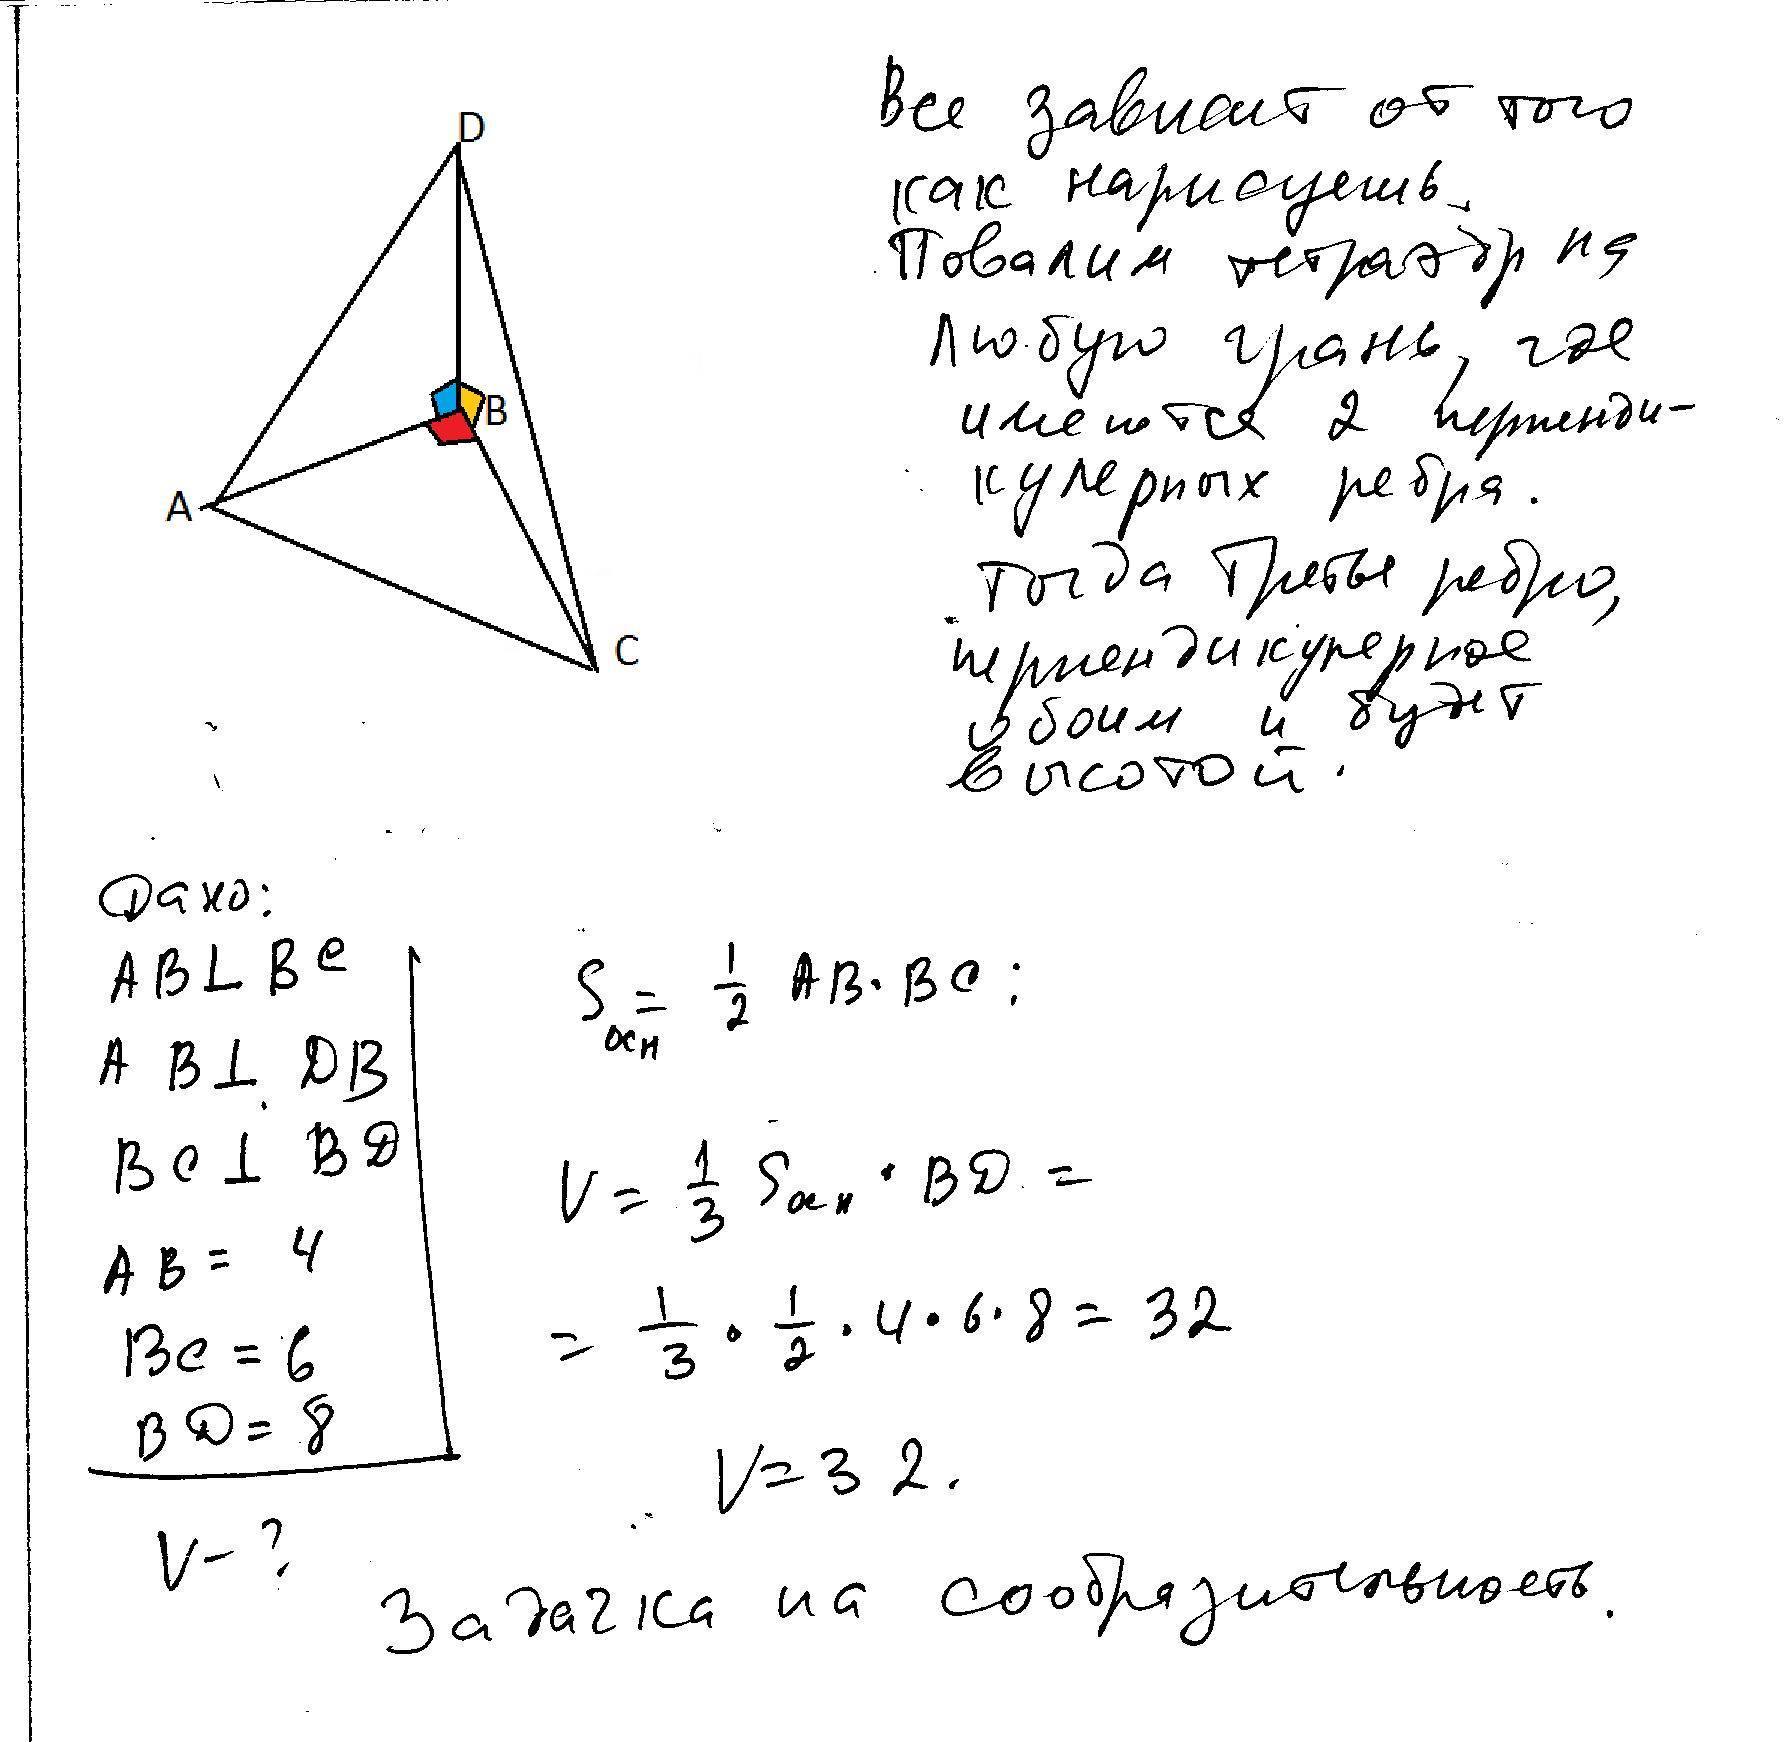 D
B
A
C
Все зависит от того
как нарисуешь.
Повалим тетраэдр на
любую грань, где
имеются 2 перпенди-
кулярных ребра.
Тогда третье ребро,
перпендикулярное
обоим и будет
высотой.
Дано:
AB⊥BC
AB⊥DB
BC⊥BD
AB=4
BC=6
BD=8
V-?
Sосн = 1/2 AB·BC;
V = 1/3 Sосн · BD =
= 1/3 · 1/2 · 4 · 6 · 8 = 32
V=32.
Задачка на сообразительность.